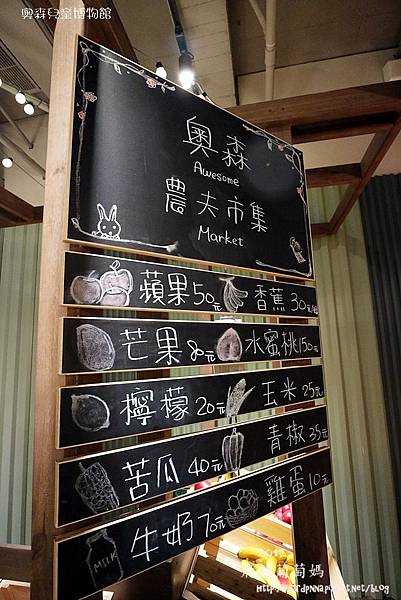 奧森兒童博物館
奧森
Awesome
農夫市集
Market
蘋果50元 香蕉30元/串
芒果80元 水蜜桃150元
檸檬20元 玉米25元
苦瓜40元 青椒35元
牛奶70元 雞蛋10元
MILK